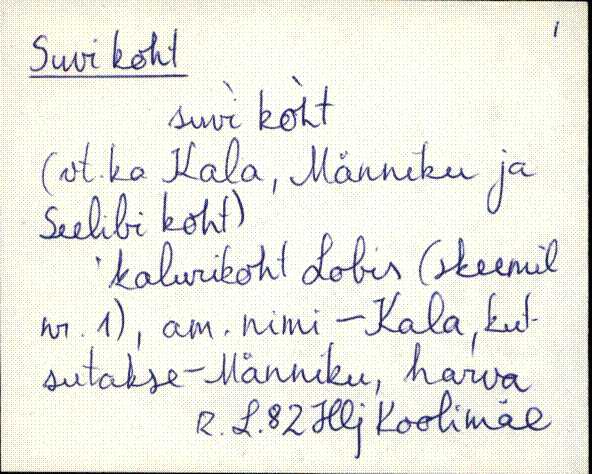 1
Suvi koht
suvì kòht
(vt. ka Kala, Männiku ja
Seelibi koht)
'kalurikoht Lobis (skeemil
nr. 1), am. nimi – Kala, kut-
sutakse – Männiku, harva
R. L. 82 Hlj Koolimäe